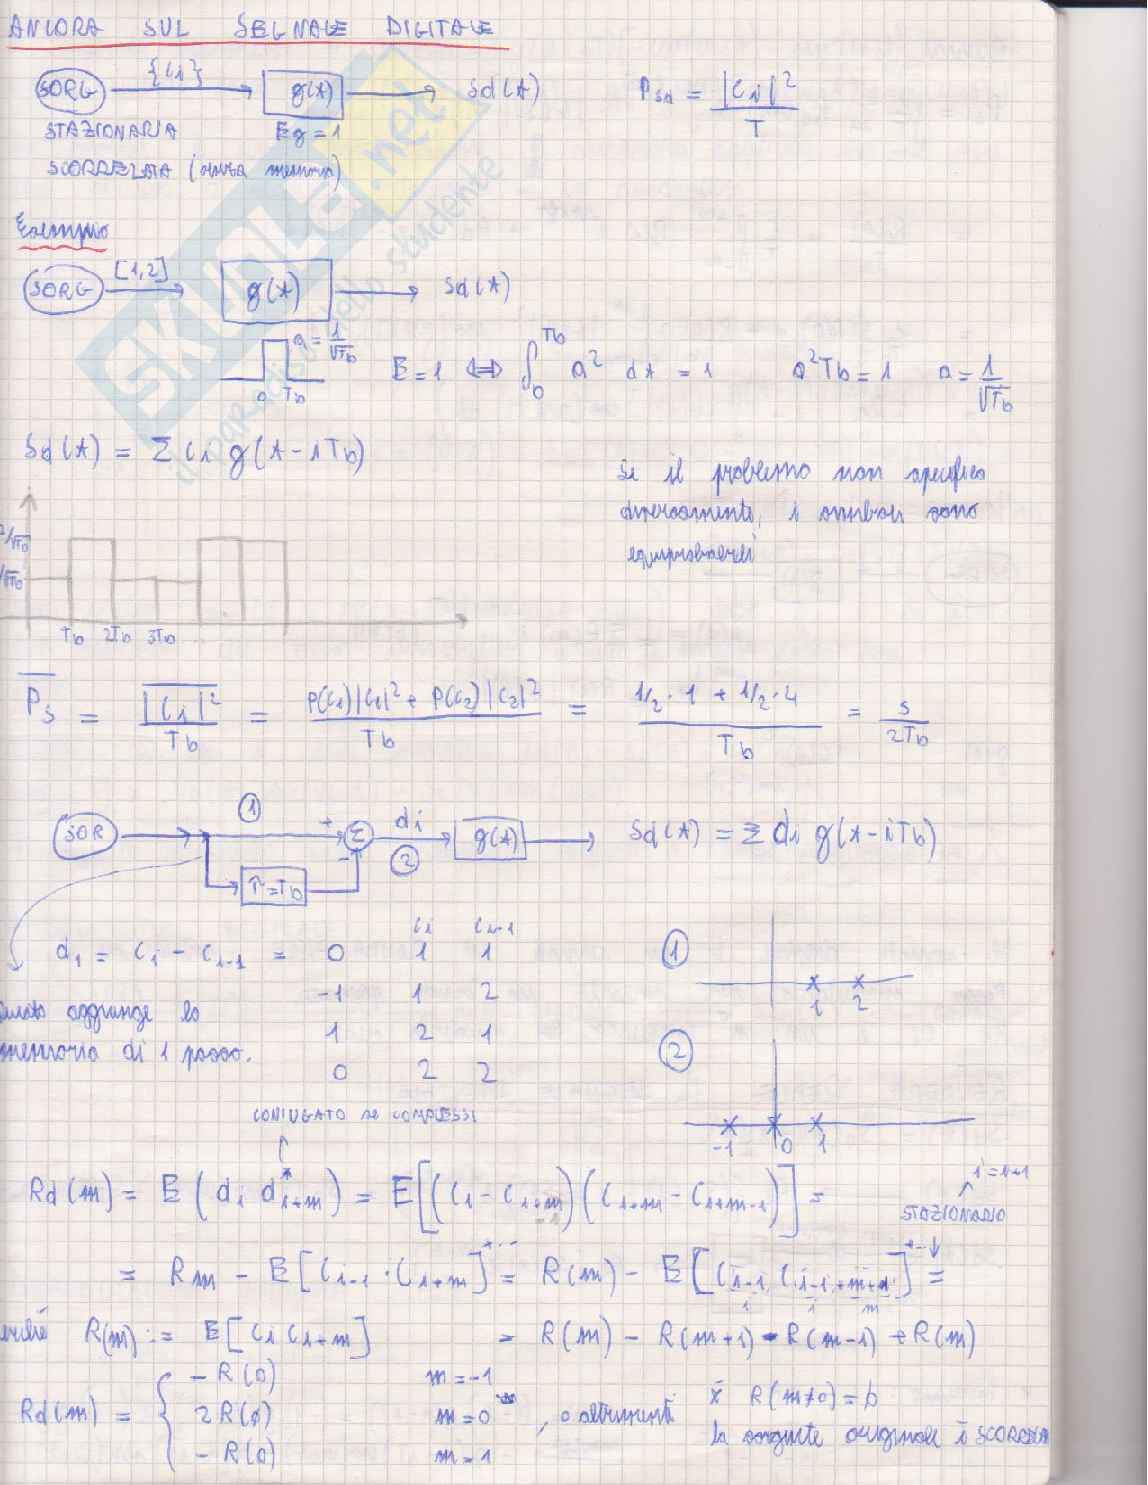 ANCORA SUL SEGNALE DIGITALE
SORG {Ci} g(t) Sd(t) Psd = |Ci|² / T
STAZIONARIA Eg = 1
SCORRELATA (senza memoria)
Esempio
SORG [1,2] g(t) Sd(t)
a = 1/√Tb
0 Tb
E = 1 ⟺ ∫₀^Tb a² dt = 1 a²Tb = 1 a = 1/√Tb
Sd(t) = Σ Ci g(t - iTb)
Se il problema non specifica
diversamente, i simboli sono
equiprobabili
2/√Tb
1/√Tb
Tb 2Tb 3Tb
Ps = |Ci|² / Tb = P(C1)|C1|² + P(C2)|C2|² / Tb = 1/2 · 1 + 1/2 · 4 / Tb = 5 / 2Tb
SOR 1 + Σ - di 2 g(t) Sd(t) = Σ di g(t - iTb)
τ = Tb
Ci Ci-1
di = Ci - Ci-1 = 0 1 1
-1 1 2
1 2 1
0 2 2
Questo aggiunge la
memoria di 1 passo.
1
1 2
2
-1 0 1
CONIUGATO SE COMPLESSI
Rd(m) = E(di d*i+m) = E[(Ci - Ci-1)(Ci+m - Ci+m-1)] =
STAZIONARIO
= Rm - E[Ci-1 · Ci+m] + ... = R(m) - E[Ci-1 Ci-1+m+1] + ... =
i i m
perché R(m) := E[Ci Ci+m] = R(m) - R(m+1) - R(m-1) + R(m)
Rd(m) = { - R(0) m = -1
2R(0) m = 0 , 0 altrimenti
- R(0) m = 1
R(m≠0) = 0
la sorgente originale è SCORRELA
SKUOLA.net
il paradiso dello studente